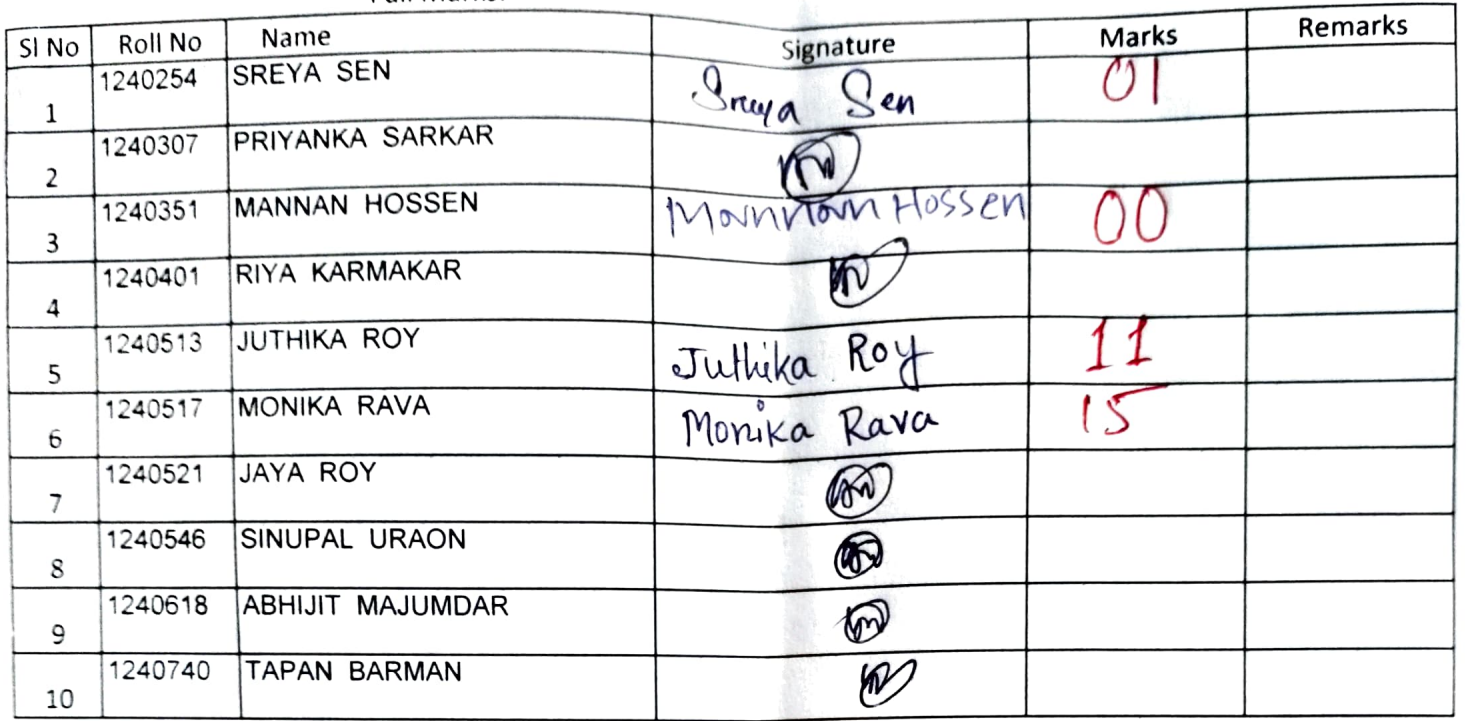 Sl No Roll No Name Signature Marks Remarks
1 1240254 SREYA SEN Sreya Sen 01
2 1240307 PRIYANKA SARKAR
3 1240351 MANNAN HOSSEN Mannan Hossen 00
4 1240401 RIYA KARMAKAR
5 1240513 JUTHIKA ROY Juthika Roy 11
6 1240517 MONIKA RAVA Monika Rava 15
7 1240521 JAYA ROY
8 1240546 SINUPAL URAON
9 1240618 ABHIJIT MAJUMDAR
10 1240740 TAPAN BARMAN